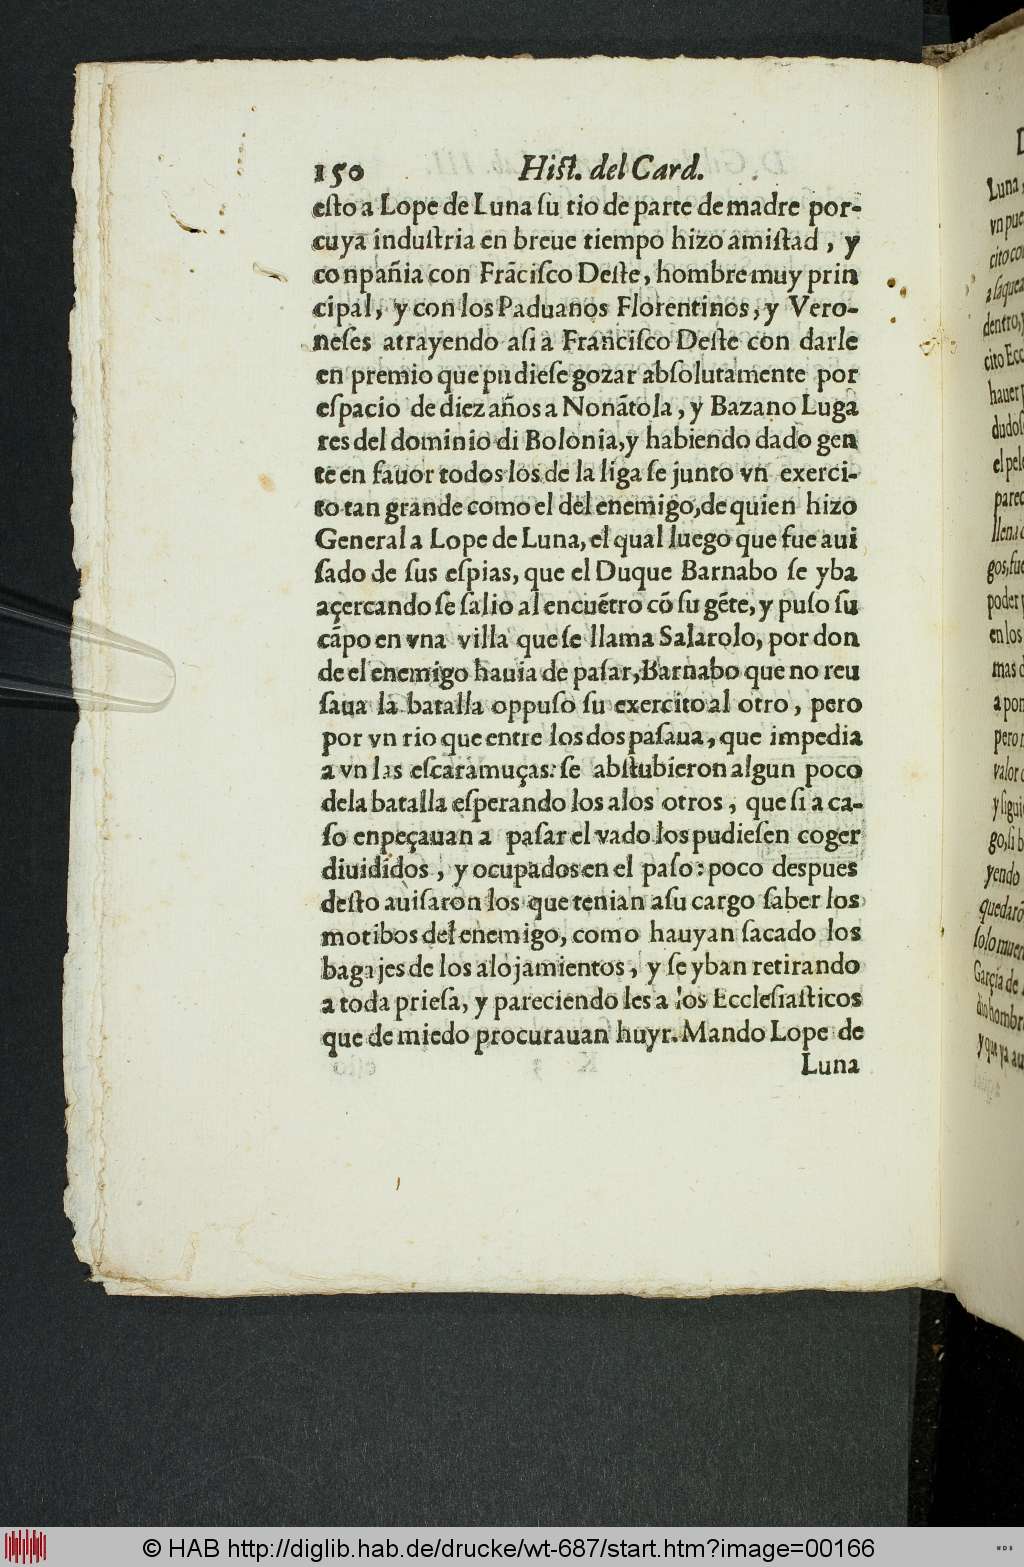 150 Hist. del Card.
esto a Lope de Luna su tio de parte de madre por-
cuya industria en breue tiempo hizo amistad, y
conpañia con Frãcisco Deste, hombre muy prin
cipal, y con los Paduanos Florentinos, y Vero-
neses atrayendo asi a Francisco Deste con darle
en premio que pudiese gozar absolutamente por
espacio de diez años a Nonãtola, y Bazano Luga
res del dominio di Bolonia, y habiendo dado gen
te en fauor todos los de la liga se junto vn exerci-
to tan grande como el del enemigo, de quien hizo
General a Lope de Luna, el qual luego que fue aui
sado de sus espias, que el Duque Barnabo se yba
açercando se salio al encuẽtro cõ su gẽte, y puso su
cãpo en vna villa que se llama Salarolo, por don
de el enemigo hauia de pasar, Barnabo que no reu
saua la batalla oppuso su exercito al otro, pero
por vn rio que entre los dos pasaua, que impedia
a vn las escaramuças: se abstubieron algun poco
dela batalla esperando los alos otros, que si a ca-
so enpeçauan a pasar el vado los pudiesen coger
diuididos, y ocupados en el paso: poco despues
desto auisaron los que tenian asu cargo saber los
motibos del enemigo, como hauyan sacado los
bagajes de los alojamientos, y se yban retirando
a toda priesa, y pareciendo les a los Ecclesiasticos
que de miedo procurauan huyr. Mando Lope de
Luna
Luna
vn pue
cito co
a saquea
dentro, y
cito Ecc
hauer
dudos
el pele
parec
llena
gos, fue
poder
en los
mas
a pon
pero
valor
y sigui
go, si b
yendo
quedarõ
solo muer
Garçia de
dio hombre
y que ya au
© HAB http://diglib.hab.de/drucke/wt-687/start.htm?image=00166